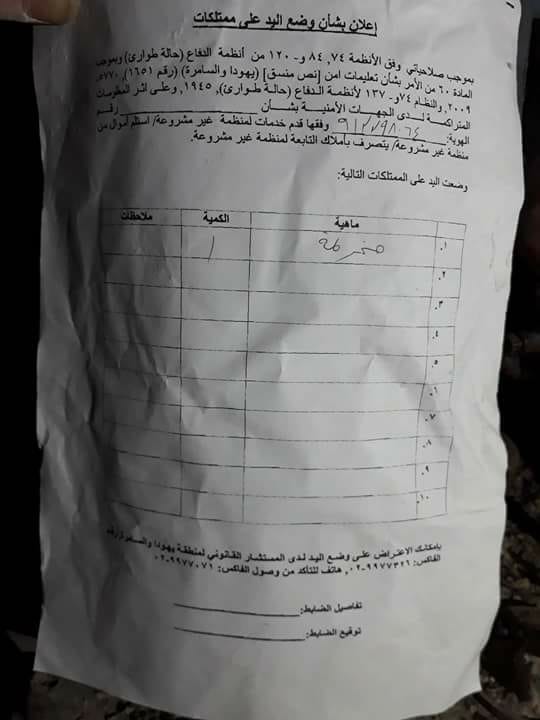 إعلان بشأن وضع اليد على ممتلكات
بموجب صلاحياتي وفق الأنظمة ٧٤, ٨٤ و- ١٢٠ من أنظمة الدفاع (حالة طوارئ) وبموجب
المادة ٦٠ من الأمر بشأن تعليمات امن [نص منسق] (يهودا والسامرة) (رقم ١٦٥١), ٥٧٧٠-
٢٠٠٩, والنظام ٧٤ و- ١٣٧ لأنظمة الدفاع (حالة طوارئ), ١٩٤٥, وعلى اثر المعلومات
المتراكمة لدى الجهات الأمنية بشأن ____________ رقم
الهوية: ____________ وفقها قدم خدمات لمنظمة غير مشروعة/ استلم أموال من
منظمة غير مشروعة/ يتصرف بأملاك التابعة لمنظمة غير مشروعة.
وضعت اليد على الممتلكات التالية:
ماهية الكمية ملاحظات
.١ مخرطة ١
.٢
.٣
.٤
.٥
.٦
.٧
.٨
.٩
.١٠
بإمكانك الاعتراض على وضع اليد لدى المستشار القانوني لمنطقة يهودا والسامرة رقم
الفاكس: ٩٩٧٧٣٢٦-٠٢, هاتف للتأكد من وصول الفاكس: ٩٩٧٧٠٧١-٠٢
تفاصيل الضابط: ____________
توقيع الضابط: ____________